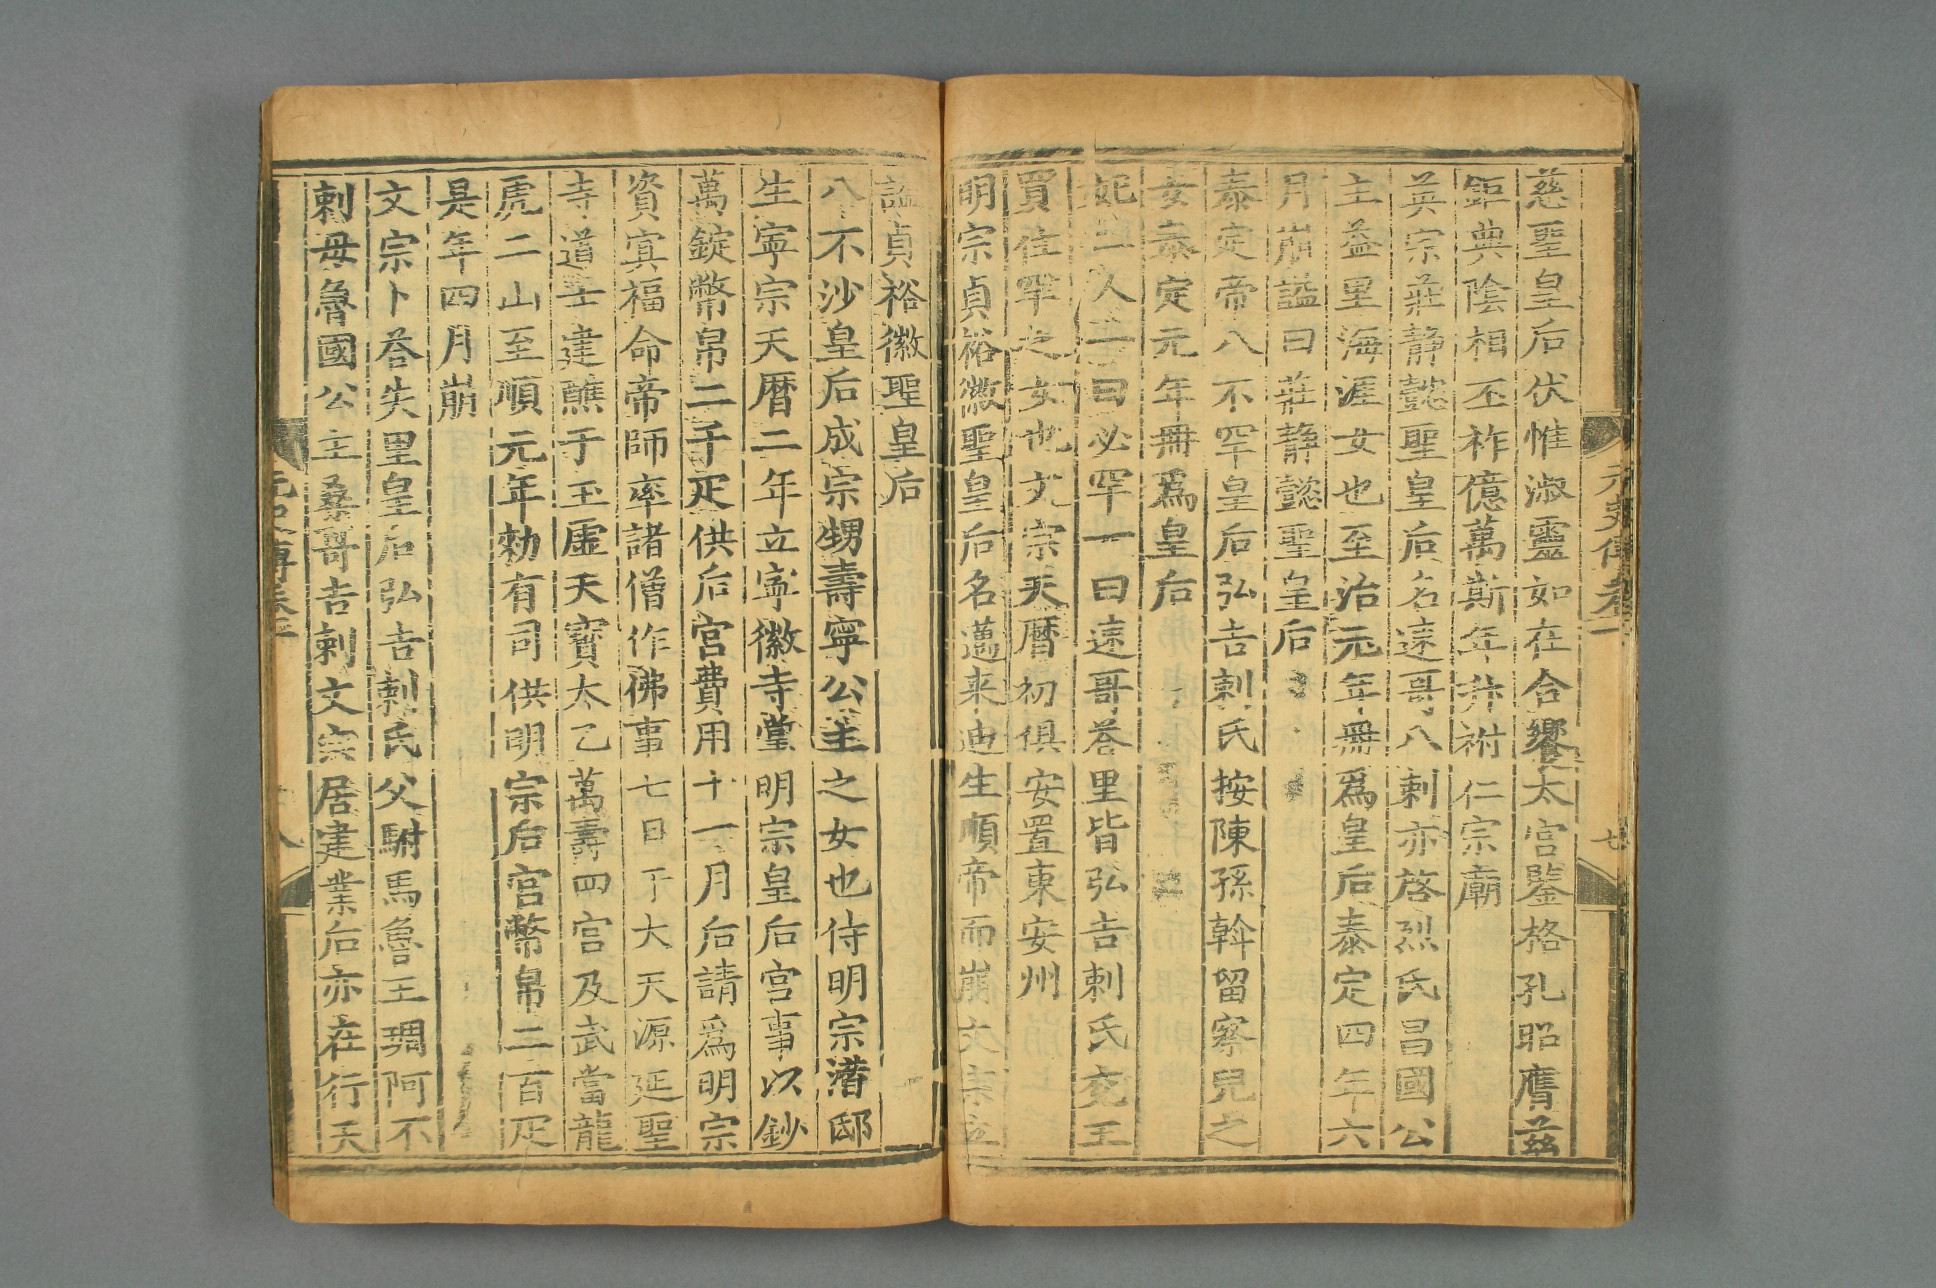 慈聖皇后伏惟淑靈如在合饗太宮鑒格孔昭膺茲
鉅典陰相丕祚億萬斯年升祔仁宗廟
英宗莊静懿聖皇后名速哥八剌亦啓烈氏昌國公
主益里海涯女也至治元年冊爲皇后泰定四年六
月崩謚曰莊静懿聖皇后
泰定帝八不罕皇后弘吉剌氏按陳孫斡留察兒之
女泰定元年冊爲皇后
妃二人一曰必罕一曰速哥荅里皆弘吉剌氏兖王
買住罕之女也文宗天曆初俱安置東安州
明宗貞裕徽聖皇后名邁来迪生順帝而崩文宗立
謚貞裕徽聖皇后
八不沙皇后成宗甥壽寧公主之女也侍明宗潛邸
生寧宗天曆二年立寧徽寺掌明宗皇后宮事以鈔
萬錠幣帛二千疋供后宮費用十一月后請爲明宗
資冥福命帝師率諸僧作佛事七日于大天源延聖
寺道士建醮于玉虛天寶太乙萬壽四宮及武當龍
虎二山至順元年勑有司供明宗后宮幣帛二百疋
是年四月崩
文宗卜荅失里皇后弘吉剌氏父駙馬魯王琱阿不
剌母魯國公主桑哥吉剌文宗居建業后亦在行天